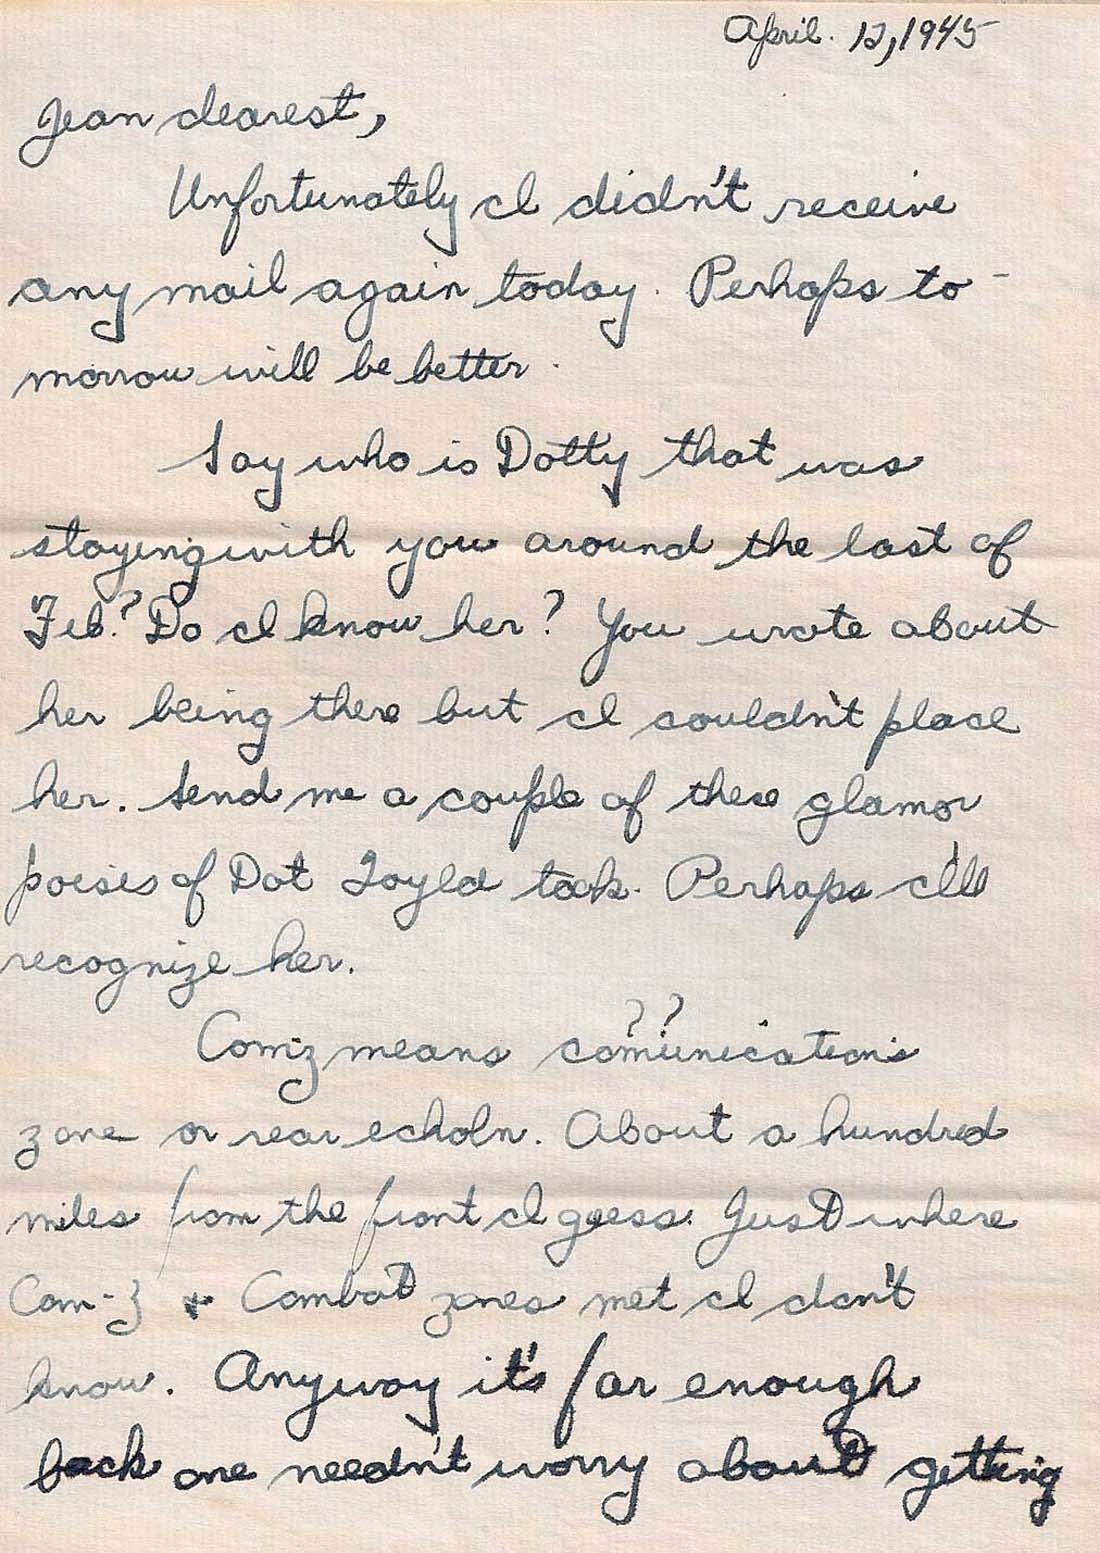 April. 12, 1945
Jean dearest,
Unfortunately I didn't receive
any mail again today. Perhaps to-
morrow will be better.
Say who is Dotty that was
staying with you around the last of
Feb.? Do I know her? You wrote about
her being there but I couldn't place
her. Send me a couple of these glamor
poises of Dot Loyld took. Perhaps I'll
recognize her.
??
Comz means comunications
zone or rear echoln. About a hundred
miles from the front I guess. Just where
Com-z + Combat zones met I don't
know. Anyway it's far enough
back one needn't worry about getting